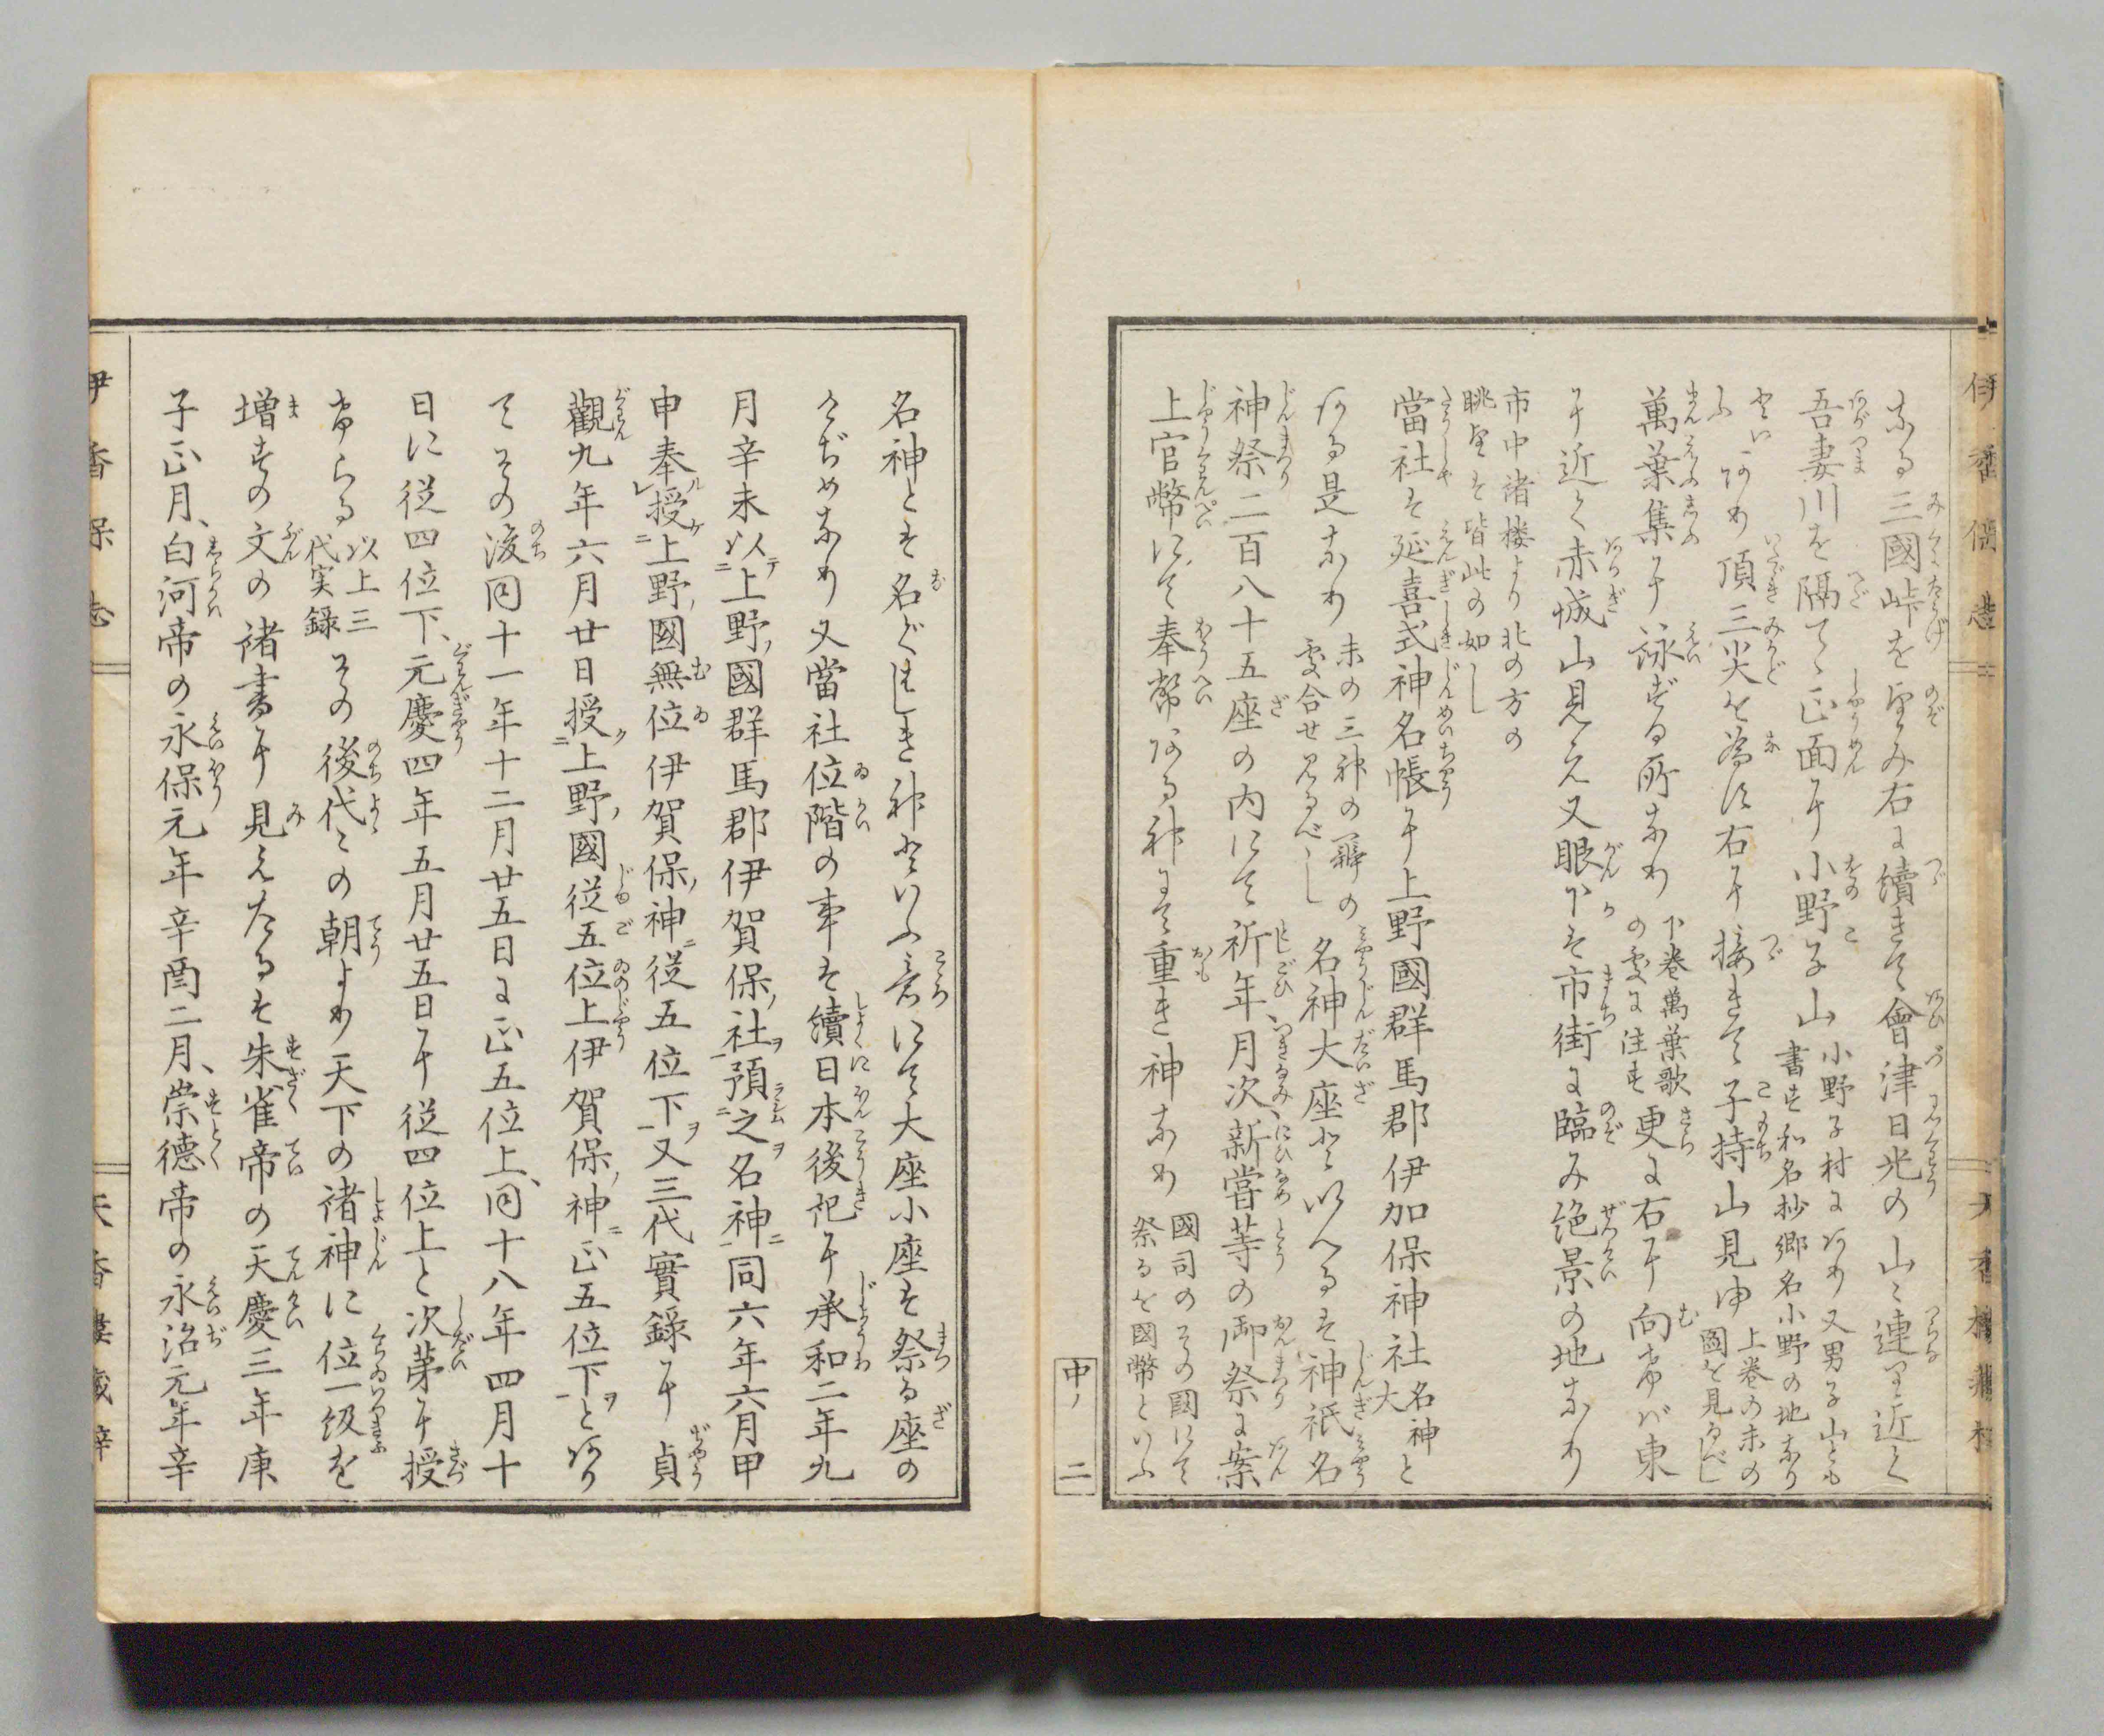 伊香保志
なる三國峠を望み右に續きて會津日光の山々連りて近く
吾妻川を隔てゝ正面に小野子山
小野子村にあり又男子山とも
書す和名抄郷名小野の地なり
といふあり頂三尖を為す右に接きて子持山見ゆ
上巻の末の
圖を見るべし
萬葉集に詠ずる所なり
下巻萬葉歌
の處に注す
更に右に向へば東
に近く赤城山見え又眼下は市街に臨み絶景の地なり
市中諸楼より北の方の
眺望は皆此の如し
當社は延喜式神名帳に上野國群馬郡伊加保神社
名神
大
と
ある是なり
末の三神の辯の
處合せ見るべし
名神大座といへるは神祇名
神祭二百八十五座の内にて祈年月次新嘗等の御祭に案
上官幣にて奉幣ある神にて重き神なり
國司のその國にて
祭るを國幣といふ
申ノ二
名神とは名ぐはしき神といふ意にて大座小座は祭る座の
けぢめなり又當社位階の事は續日本後紀に承和二年九
月辛未以上野國群馬郡伊賀保社預之名神同六年六月甲
申奉授上野國無位伊賀保神從五位下又三代實錄に貞
觀九年六月廿日授上野國從五位上伊賀保神正五位下とあり
てその後同十一年十二月廿五日に正五位上、同十八年四月十
日に從四位下、元慶四年五月廿五日に從四位上と次第に授
けらる
以上三
代実録
その後代々の朝より天下の諸神に位一級を
増すの文の諸書に見えたるは朱雀帝の天慶三年庚
子正月、白河帝の永保元年辛酉二月、崇德帝の永治元年辛
伊香保志
天香樓藏梓